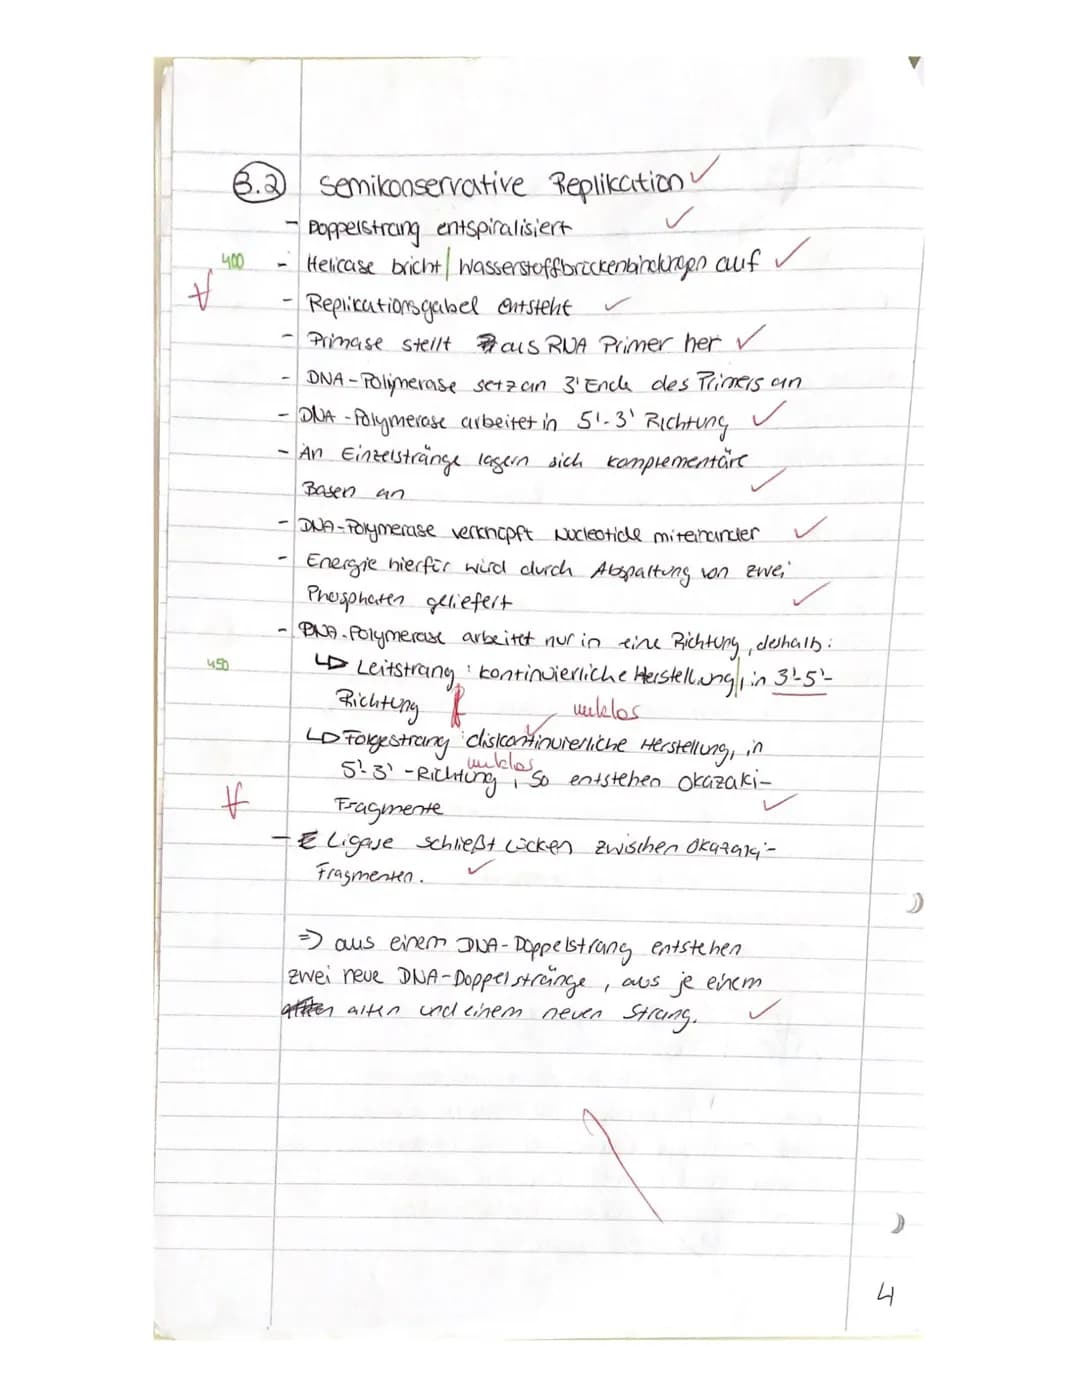 3.2 Semikonservative Replikation ✓
- Doppelstrang entspiralisiert ✓
400 - Helicase bricht | Wasserstoffbrückenbindungen auf ✓
- Replikationsgabel entsteht ✓
- Primase stellt aus RNA Primer her ✓
- DNA-Polymerase setz an 3' Ende des Primers an
- DNA-Polymerase arbeitet in 5'-3' Richtung ✓
- An Einzelstränge lagern sich komplementäre
Basen an ✓
- DNA-Polymerase verknüpft Nucleotide miteinander ✓
- Energie hierfür wird durch Abspaltung von zwei
Phosphaten geliefert ✓
- DNA-Polymerase arbeitet nur in eine Richtung, deshalb:
450 ↳ Leitstrang: kontinuierliche Herstellung|, in 3'-5'-
Richtung f unklos
↳ Folgestrang: diskontinuierliche Herstellung, in ✓
unklos
5'-3'-Richtung, So entstehen Okazaki-
Fragmente ✓
- Ligase schließt Lücken zwischen Okazaki-
Fragmenten. ✓
=> aus einem DNA-Doppelstrang entstehen
zwei neue DNA-Doppelstränge, aus je einem
alten und einem neuen Strang. ✓
4